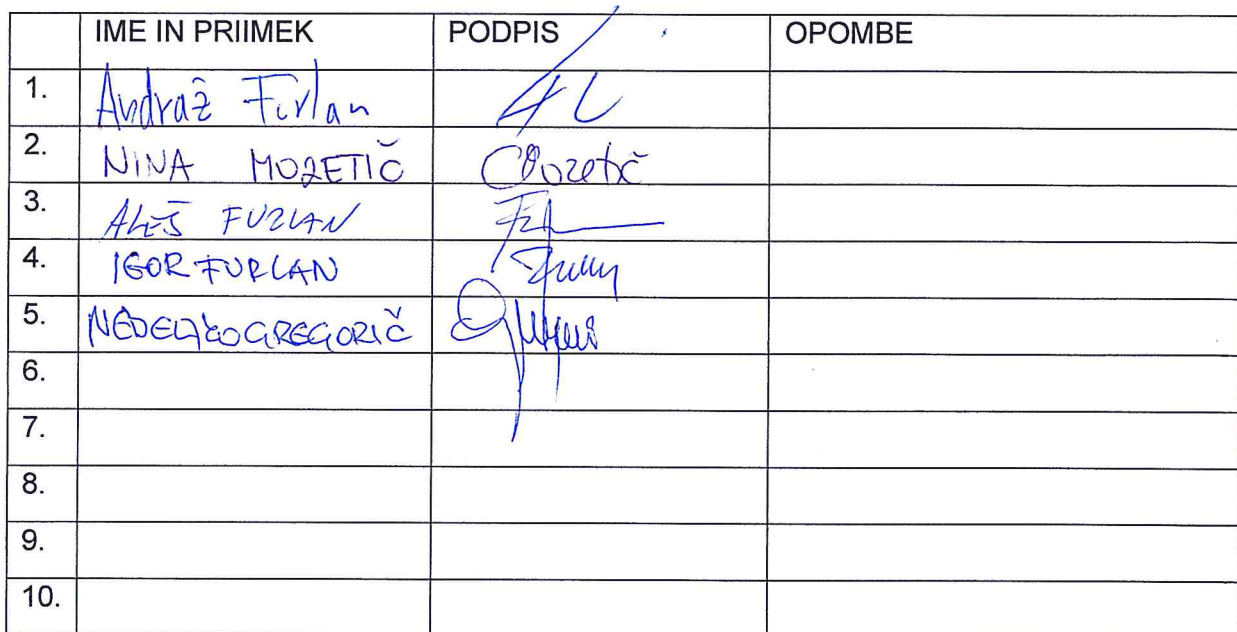 IME IN PRIIMEK PODPIS OPOMBE
1. Andraž Furlan
2. NINA MOZETIČ Mozetič
3. ALEŠ FURLAN
4. IGOR FURLAN
5. NEDELJKO GREGORIČ
6.
7.
8.
9.
10.